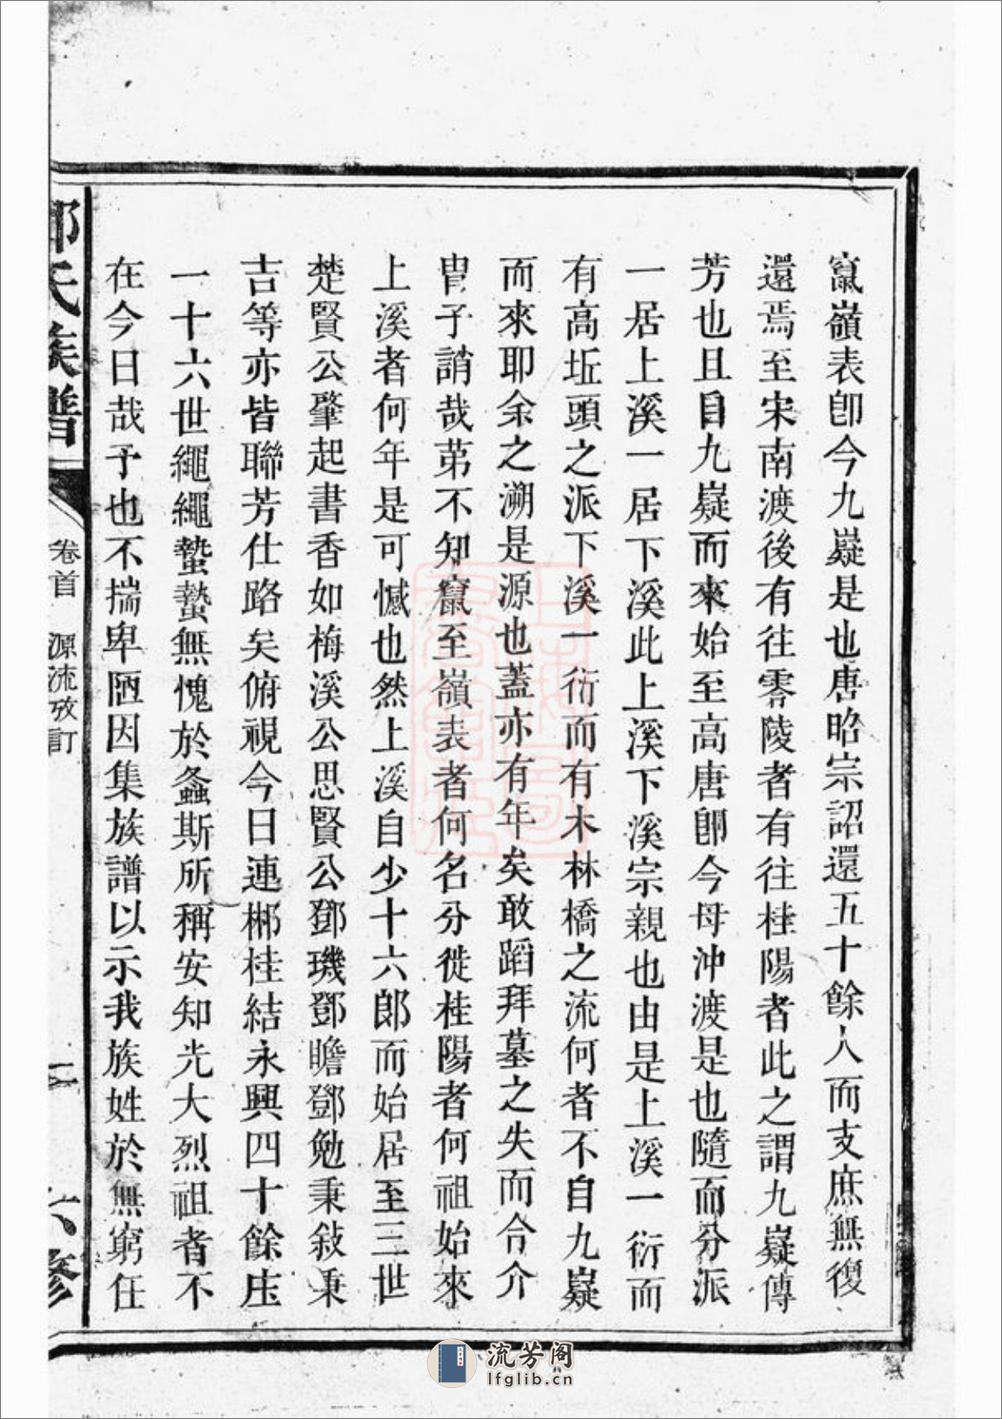 竄嶺表卽今九嶷是也唐昭宗詔還五十餘人而支庶無復
還焉至宋南渡後有往零陵者有往桂陽者此之謂九嶷傳
芳也且自九嶷而來始至高唐卽今母沖渡是也隨而分派
一居上溪一居下溪此上溪下溪宗親也由是上溪一衍而
有高坵頭之派下溪一衍而有木林橋之流何者不自九嶷
而來耶余之溯是源也蓋亦有年矣敢蹈拜墓之失而令介
胄子誚哉苐不知竄至嶺表者何名分徙桂陽者何祖始來
上溪者何年是可憾也然上溪自少十六郎而始居至三世
楚賢公肇起書香如梅溪公思賢公鄧璣鄧瞻鄧勉秉敍秉
吉等亦皆聯芳仕路矣俯視今日連郴桂結永興四十餘庄
一十六世繩繩蟄蟄無愧於螽斯所稱安知光大烈祖者不
在今日哉予也不揣卑陋因集族譜以示我族姓於無窮任
鄧氏族譜
卷首 源流攷訂
六修
流芳阁
lfglib.cn